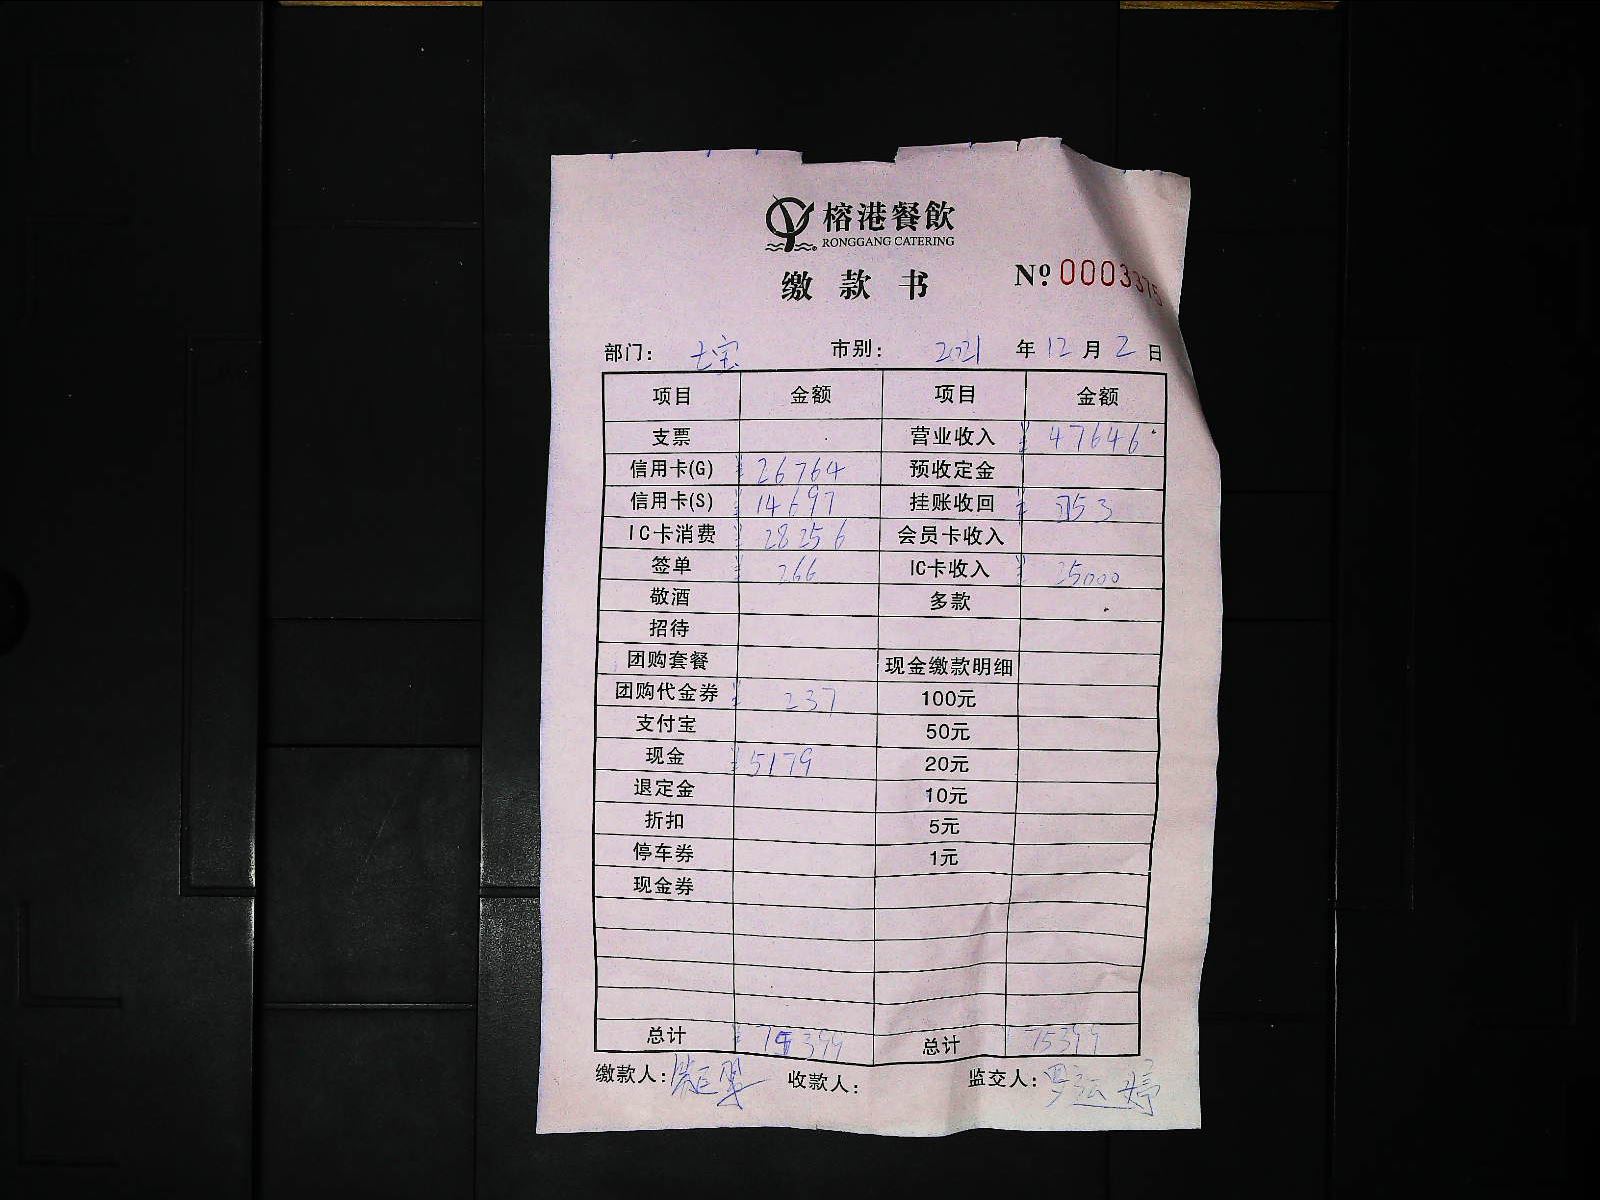 榕港餐飲
RONGGANG CATERING
缴款书 № 0003375
部门: 七宝 市别: 2021 年 12 月 2 日
项目 金额 项目 金额
支票 营业收入 ¥ 47646
信用卡(G) ¥ 26764 预收定金
信用卡(S) ¥ 14697 挂账收回 ¥ 2753
IC卡消费 ¥ 28256 会员卡收入
签单 ¥ 266 IC卡收入 ¥ 25000
敬酒 多款
招待
团购套餐 现金缴款明细
团购代金券 ¥ 237 100元
支付宝 50元
现金 ¥ 5179 20元
退定金 10元
折扣 5元
停车券 1元
现金券
总计 ¥ 75399 总计 ¥ 75399
缴款人: 收款人: 监交人: 罗运婷